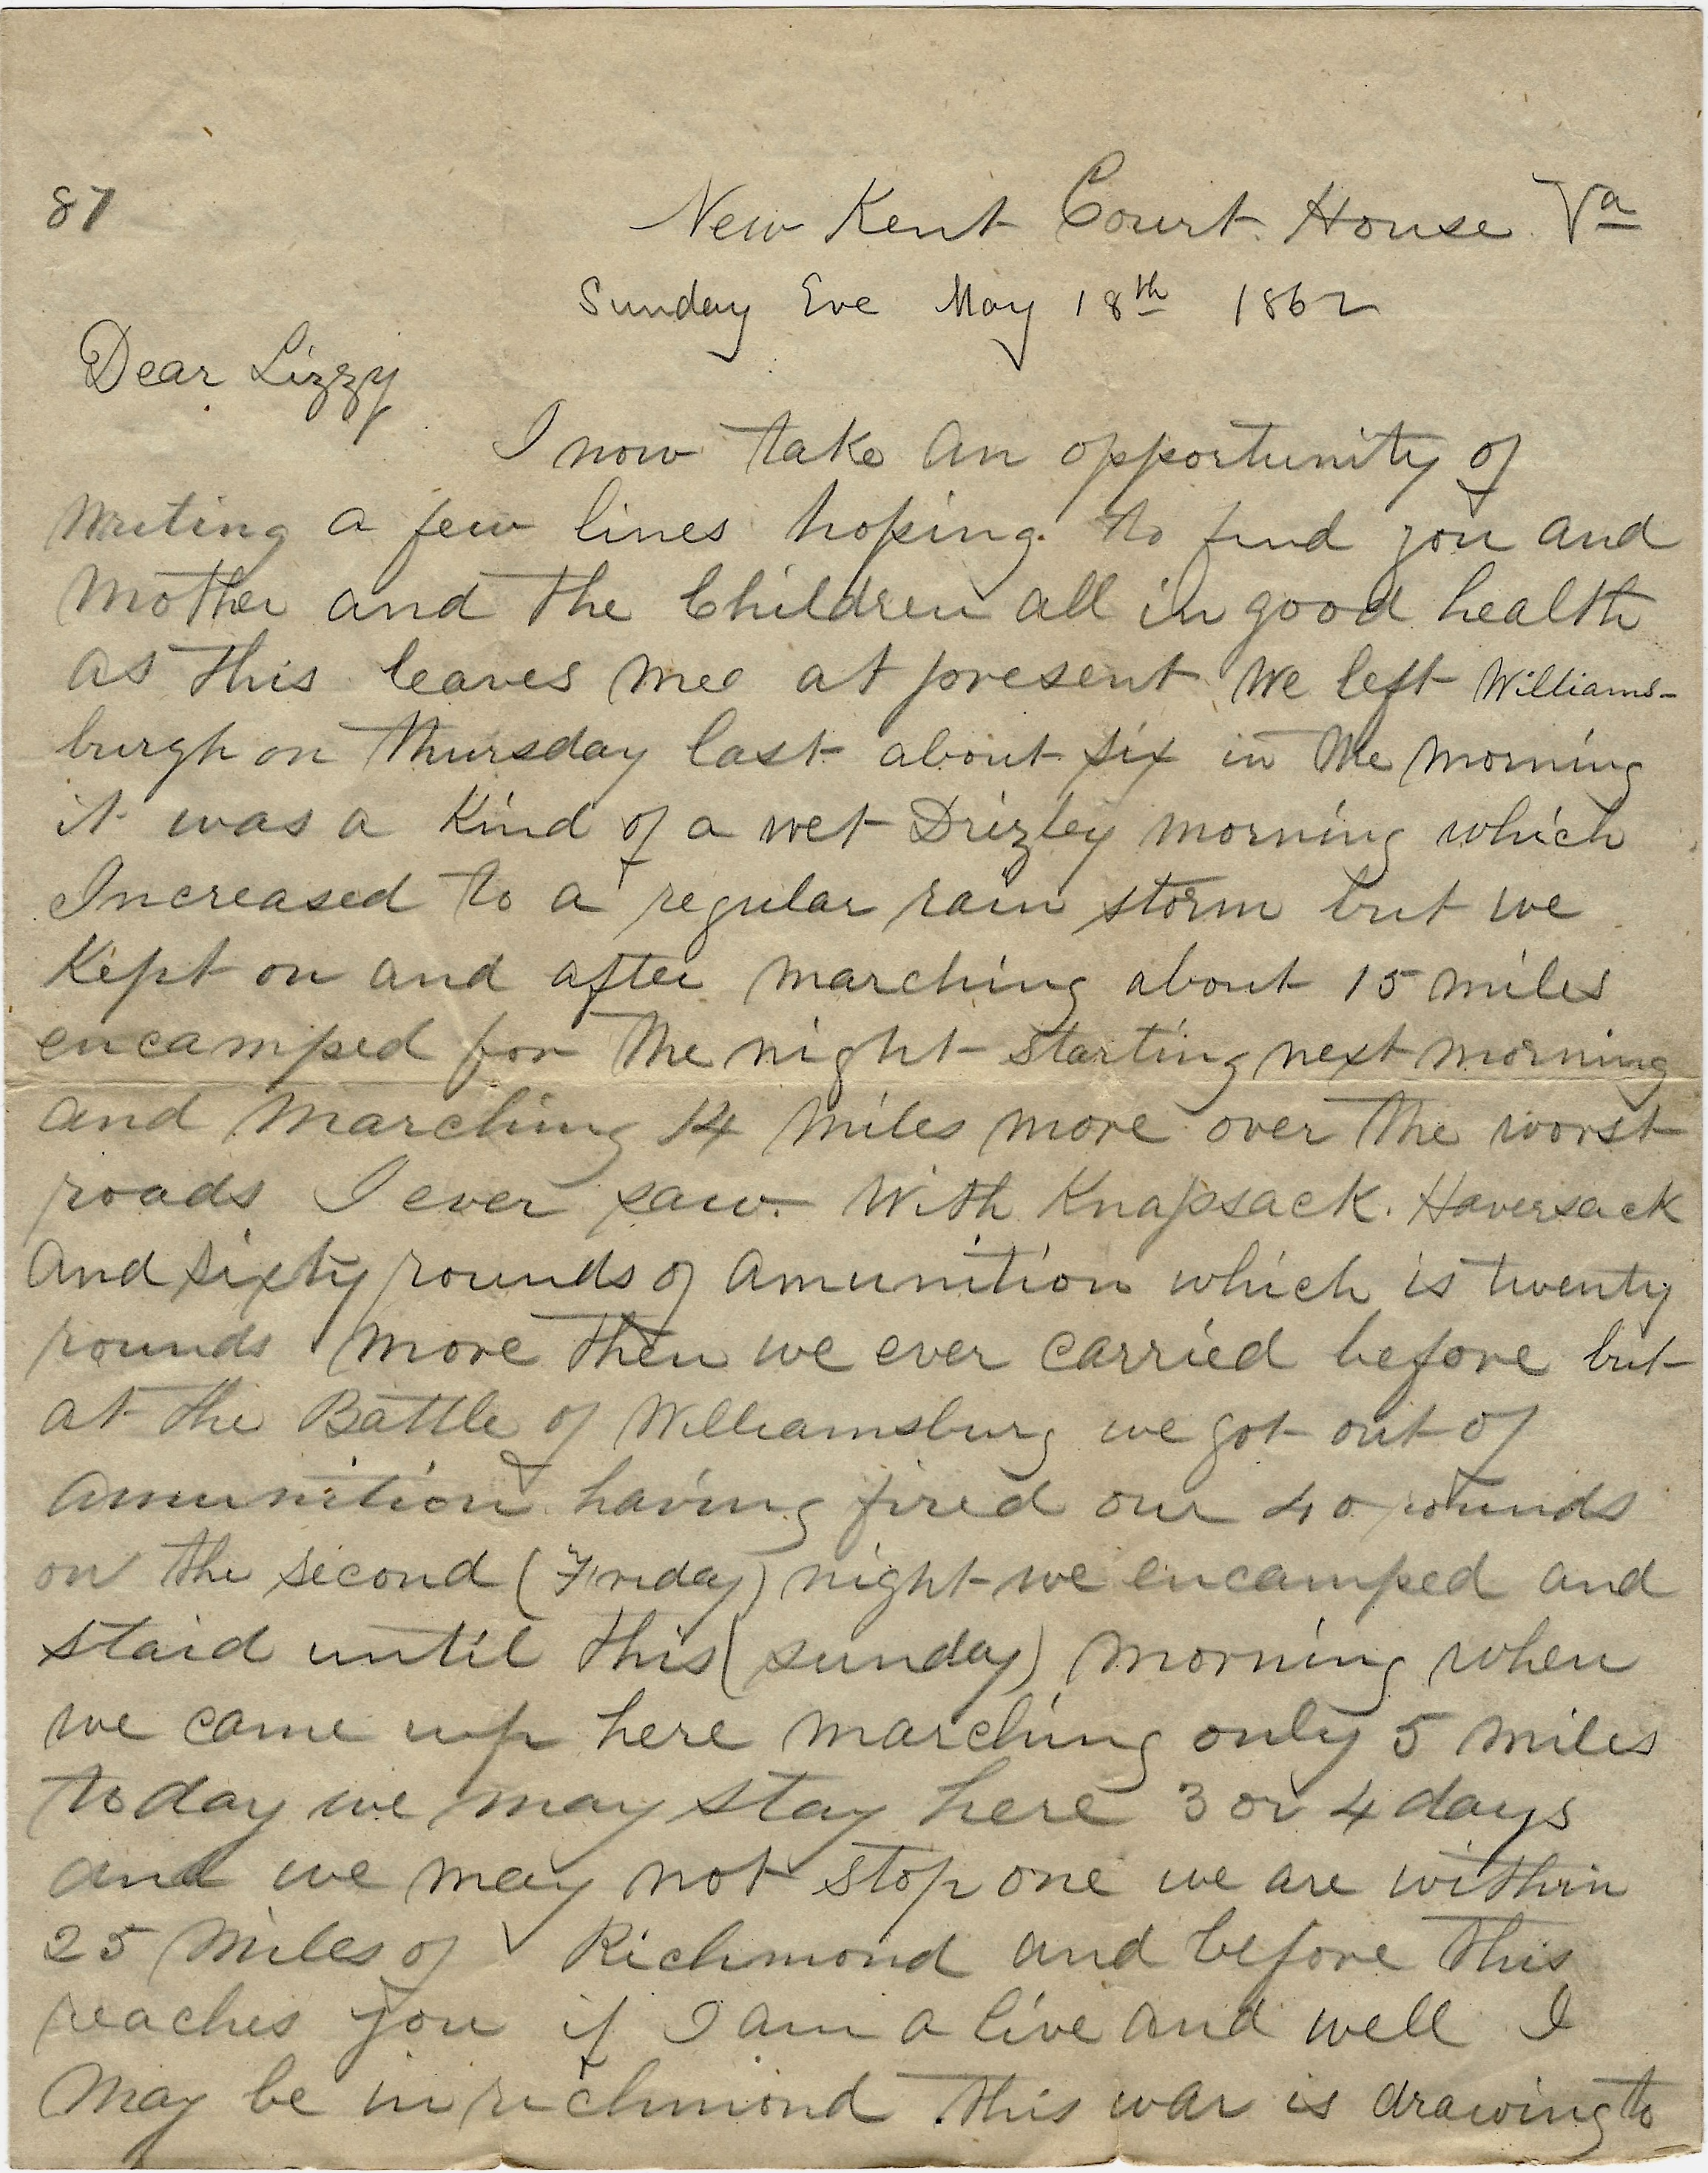 87
New Kent Court House Va
Sunday Eve May 18th 1862
Dear Lizzy
I now take an opportunity of
writing a few lines hoping to find you and
Mother and the Children all in good health
as this leaves mee at present We left Williams-
burgh on thursday last about six in the morning
it was a Kind of a wet Drizley morning which
Increased to a regular rain storm but we
Kept on and after marching about 15 miles
encamped for the night starting next morning
and marching 14 miles more over the worst
roads I ever saw. With Knapsack. Haversack
and sixty rounds of amunition which is twenty
rounds more then we ever carried before but
at the Battle of Williamsburg we got out of
amunition having fired our 40 rounds
on the second (Friday) night we encamped and
staid until this (sunday) morning when
we came up here marching only 5 miles
to day we may stay here 3 or 4 days
and we may not stop one we are within
25 miles of Richmond and before this
reaches you if I am a live and well I
may be in richmond this war is drawing to